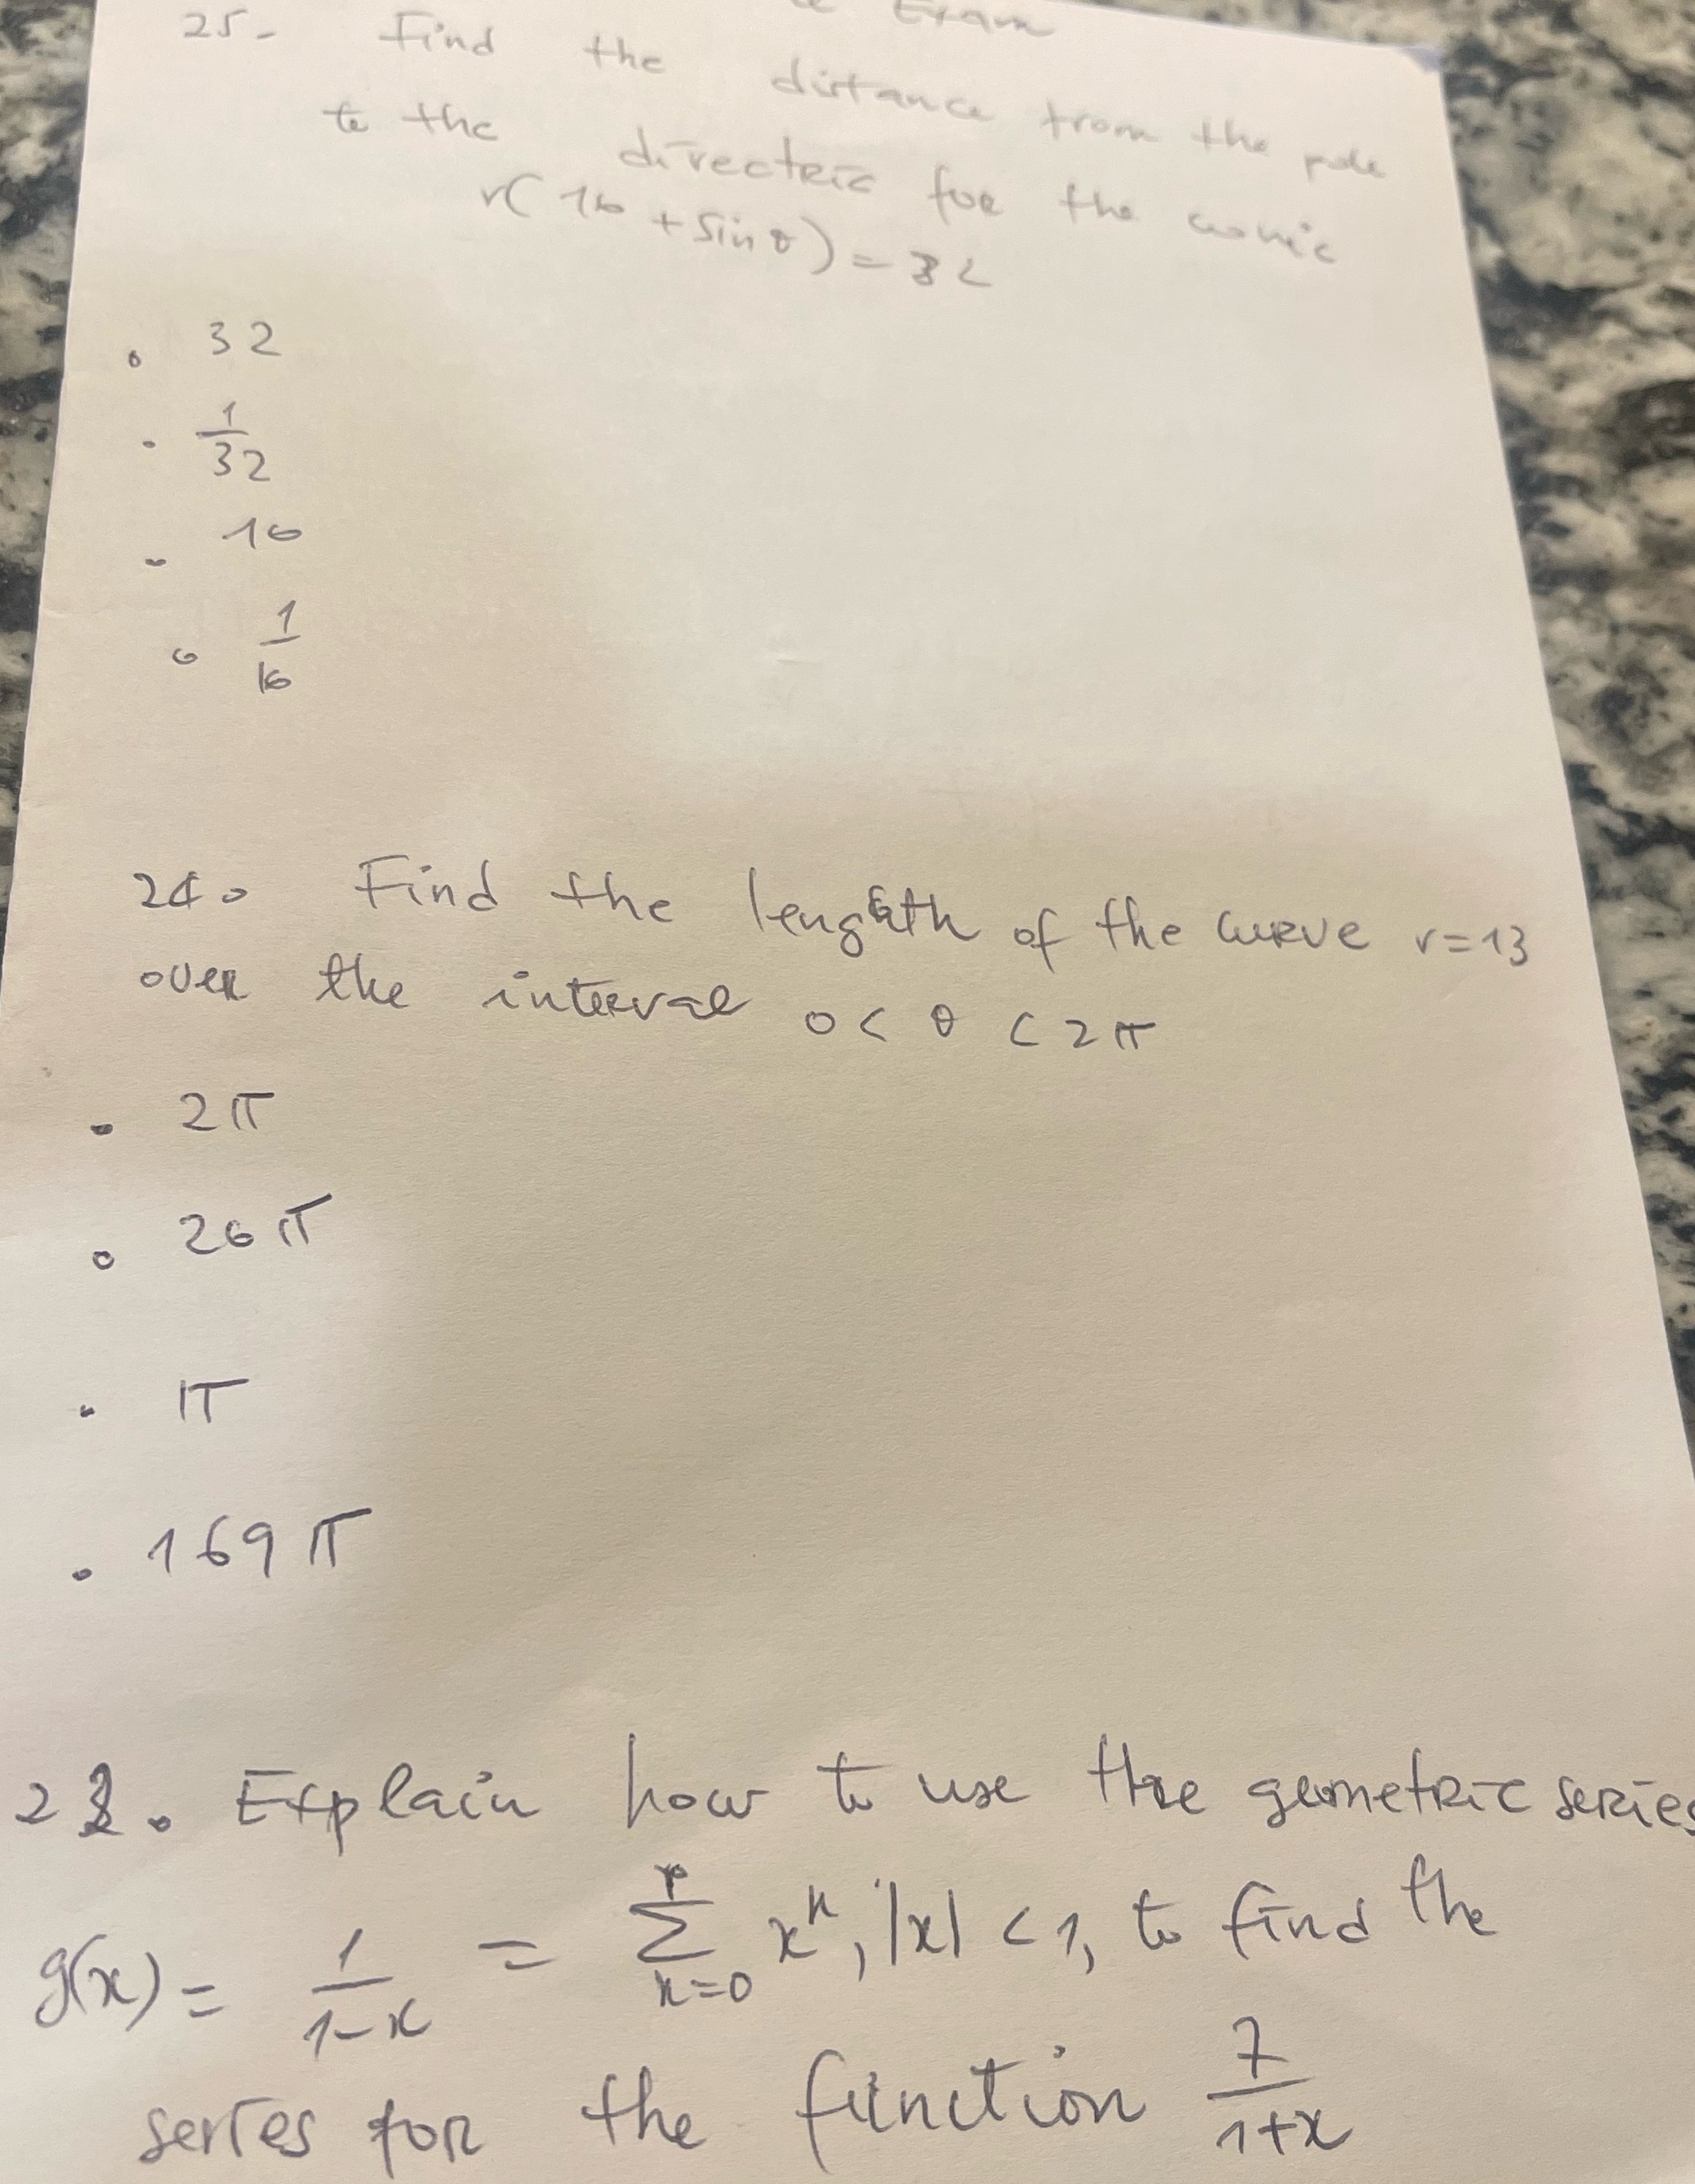 Exam
25- Find the distance from the pole
to the directric for the conic
r(16 + sin θ) = 32
• 32
• 1/32
- 16
• 1/16
24. Find the length of the curve r=13
over the interval 0 < θ < 2π
• 2π
• 26π
• π
• 169π
23. Explain how to use the geometric series
g(x) = 1/(1-x) = Σ n=0 xⁿ, |x| < 1, to find the
series for the function 7/(1+x)